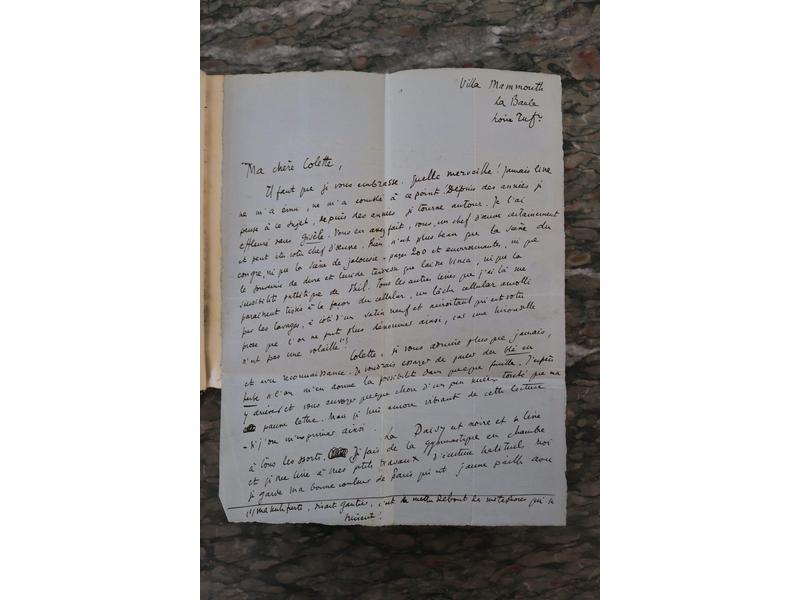 Villa Mammouth
La Baule
Loire Inf.
Ma chère Colette,
Il faut que je vous embrasse. Quelle merveille! Jamais livre
ne m'a ému, ne m'a comblé à ce point. Depuis des années je
pense à ce sujet, depuis des années je tourne autour. Je l'ai
effleuré dans Gisèle. Vous en avez fait, vous, un chef d'œuvre certainement
et peut être votre chef d'œuvre. Rien n'est plus beau que la scène du
congre, ni que la scène de jalousie - pages 200 et environnantes, ni que
le souvenir de dure et lucide tendresse que laisse Vinca, ni que la
susceptibilité pathétique de Phil. Tous les autres livres que j'ai lu me
paraissent tissés à la façon du cellular, un lâche cellular amolli
par les lavages, à côté d'un satin neuf et miroitant qui est votre
prose que l'on ne peut plus dénommer ainsi, car une hirondelle
n'est pas une volaille (1)
Colette, je vous admire plus que jamais,
et avec reconnaissance. Je voudrais essayer de parler du blé en
herbe si l'on m'en donne la possibilité dans quelque feuille. J'espère
y arriver et vous envoyer quelque chose d'un peu mieux torché que ma
pauvre lettre. Mais je suis encore vibrant de cette lecture
- si j'ose m'exprimer ainsi.
La Daisy est noire et se livre
à tous les sports. Je fais de la gymnastique en chambre
et je me livre à mes petits travaux d'écriture habituels, moi
je garde ma bonne couleur de Paris qui est jaune paille avec
(1) ma seule force, disait Gautier, c'est de mettre debout les métaphores qui se
suivent!